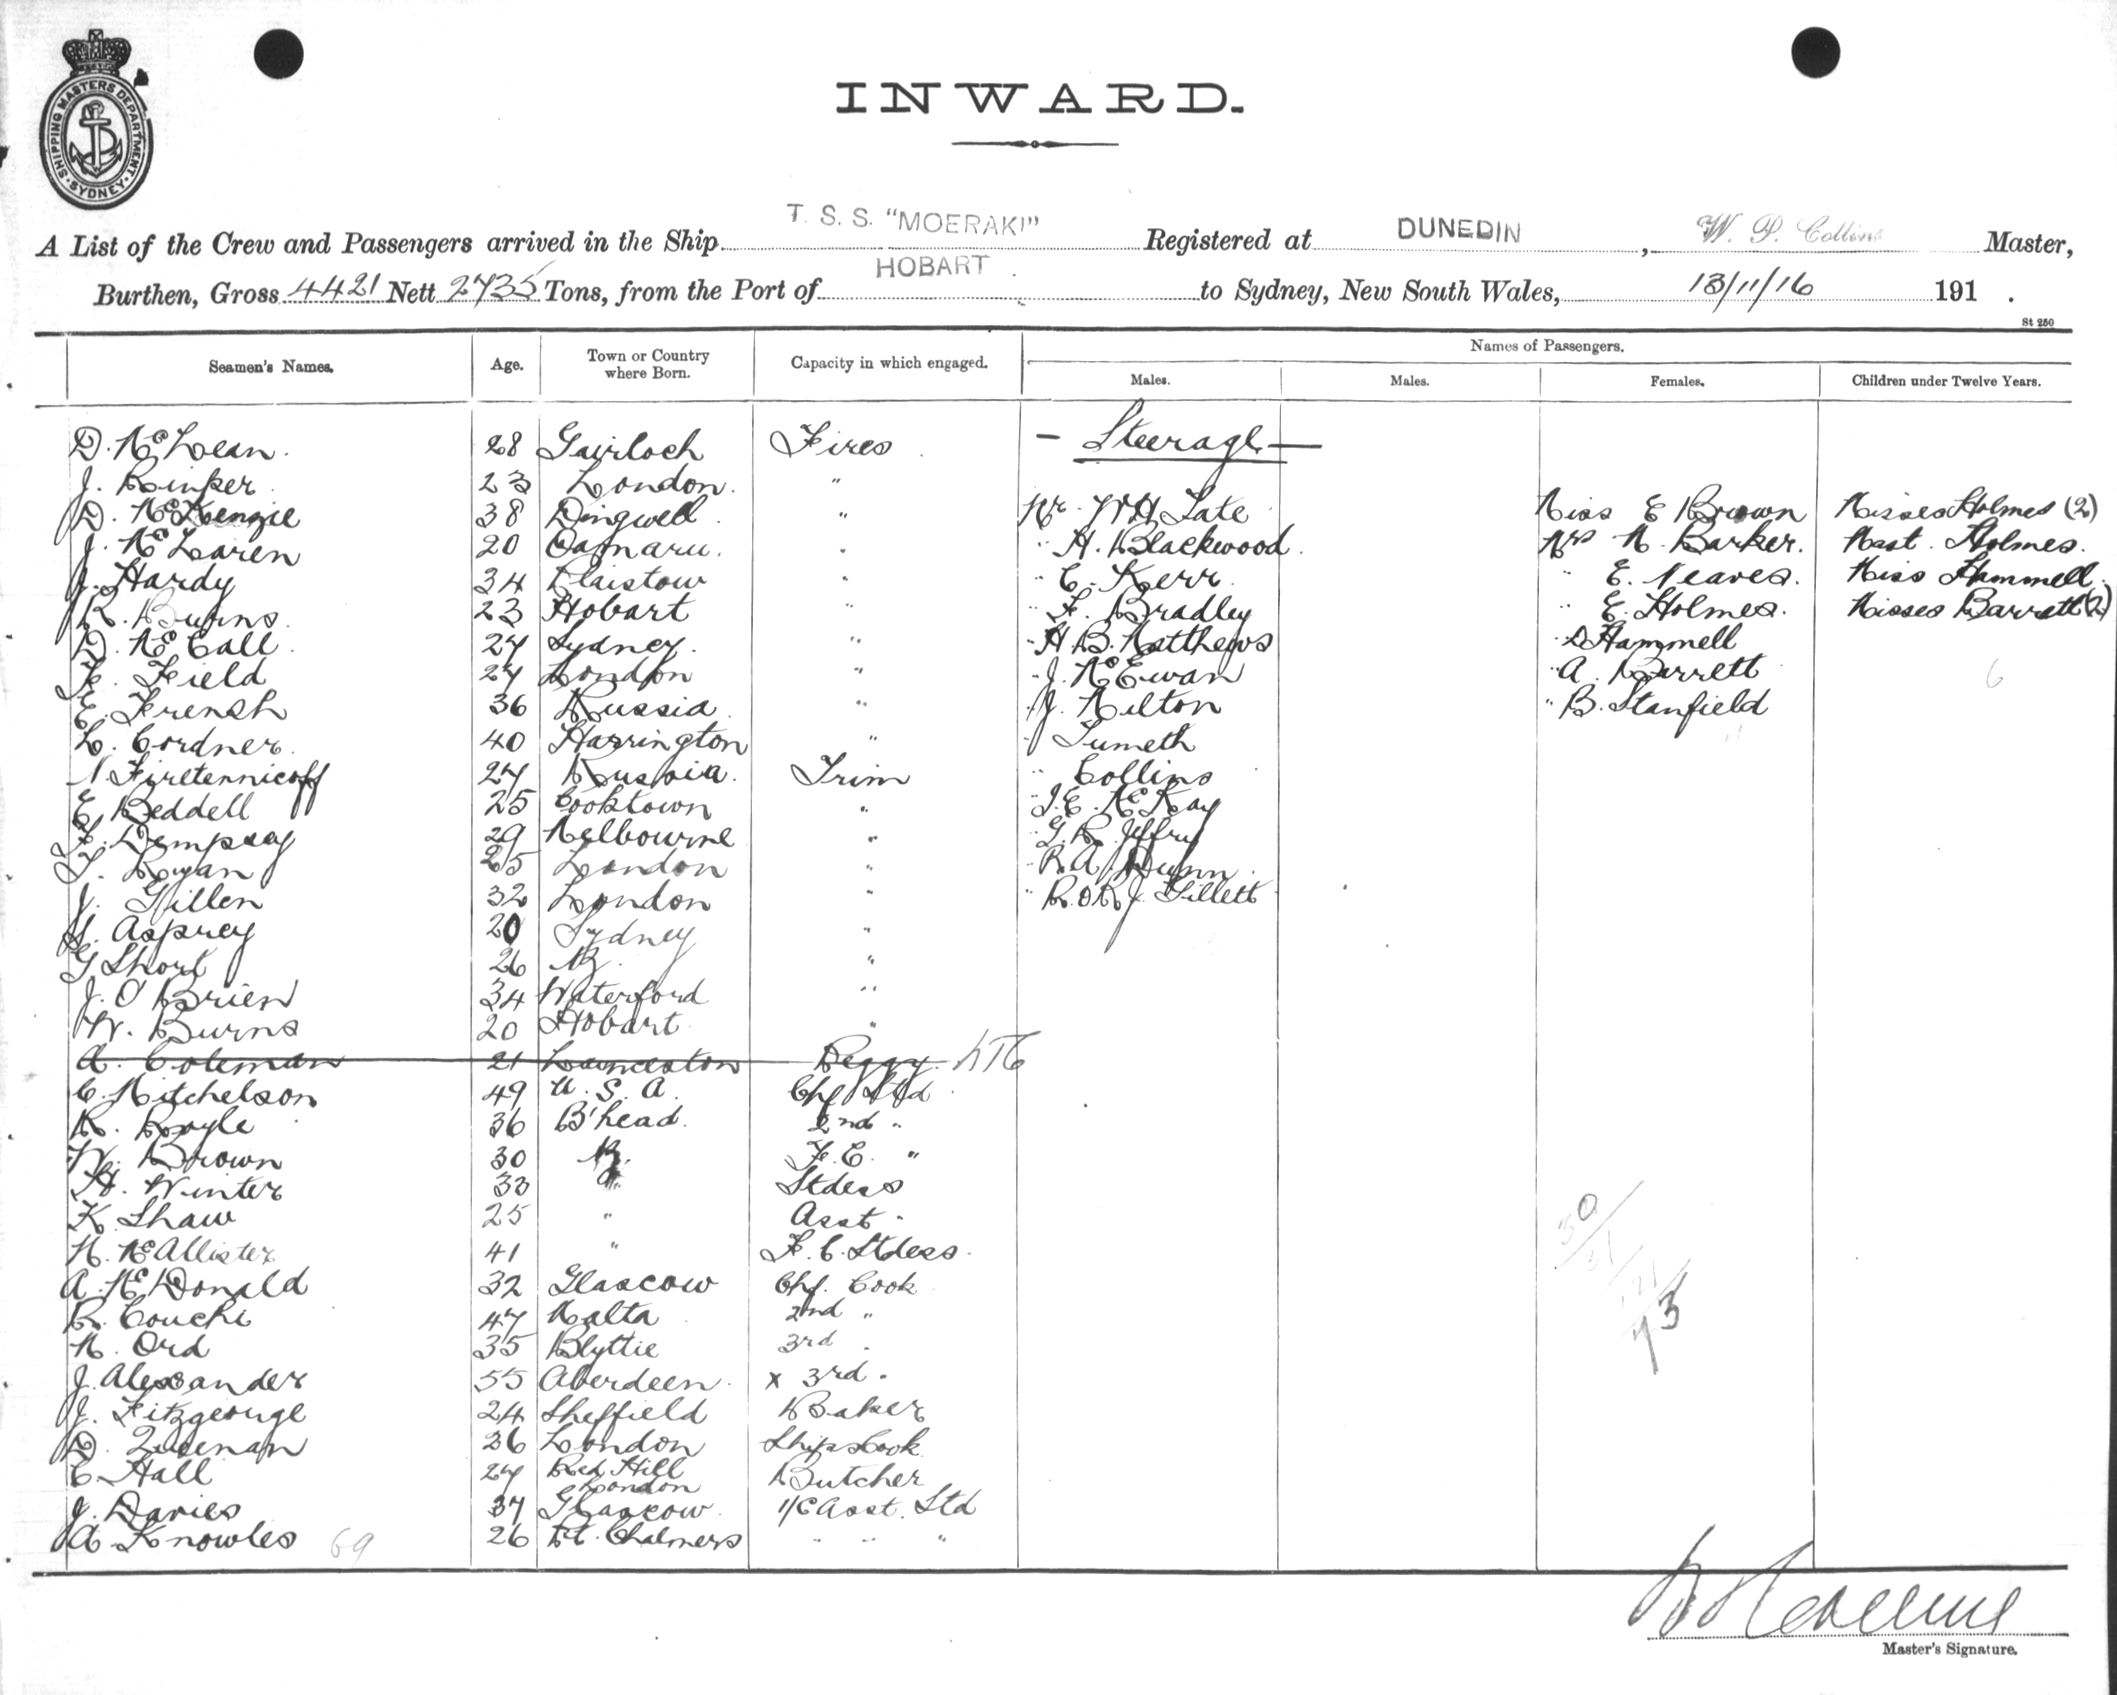 SHIPPING MASTERS DEPARTMENT · SYDNEY ·
INWARD.
A List of the Crew and Passengers arrived in the Ship T. S. S. "MOERAKI" Registered at DUNEDIN, W. P. Collins Master,
Burthen, Gross 4421 Nett 2735 Tons, from the Port of HOBART to Sydney, New South Wales, 13/11/16 191 .
St 250
Seamen's Names. Age. Town or Country where Born. Capacity in which engaged. Names of Passengers.
Males. Males. Females. Children under Twelve Years.
D. McLean. 28 Gairloch Fires — Steerage —
J. Rinker 23 London. "
D. McKenzie 38 Dingwell " Mr. W H Tate Miss E Brown Misses Holmes (2)
J. McLaren 20 Oamaru. " " H. Blackwood. Mrs M. Barker. Mast. Holmes.
J. Hardy 34 Plaistow " " C. Kerr " E. Neaves. Miss Hammell.
R. Burns. 23 Hobart " " F. Bradley " E. Holmes. Misses Barrett (2)
D. McCall 27 Sydney. " " H. B. Matthews " D Hammell
F. Field 27 London " " J. McEwan " A. Barrett 6
E. French 36 Russia " " J. Milton " B. Stanfield
L. Cordner. 40 Harrington " " Tumeth
N. Firetennicoff 27 Russia. Trim " Collins
E. Beddell 25 Cooktown " " J. E. McKay
F. Dempsey 29 Melbourne " " G. R. Jeffry
T. Ryan 25 London " " R. A. Dunn
J. Gillen 32 London " " R. & R. J. Gillett
H. Asprey 20 Sydney "
G Short 26 "
J. O'Brien 34 Waterford "
W. Burns 20 Hobart "
A. Coleman 21 Launceston Peggy
C. Mitchelson 49 U. S. A. Chf Std
R. Royle 36 B'head. 2nd "
W. Brown 30 F. E. "
H. Winter 33 " Stdess
K. Shaw 25 " Asst "
M. McAllister 41 " F. C. Stdess.
A. McDonald 32 Glascow Chf. Cook
R. Couchi 47 Malta 2nd "
M. Ord 35 Blyttie 3rd "
J. Alexander 55 Aberdeen. x 3rd "
J. Fitzgeorge 24 Sheffield Baker
D. Queenan 36 London Ships Cook
C. Hall 27 Red Hill London Butcher
J. Davies 37 Glascow 1/C Asst. Std
A. Knowles 69 26 Pt. Chalmers " " "
73
Master's Signature.